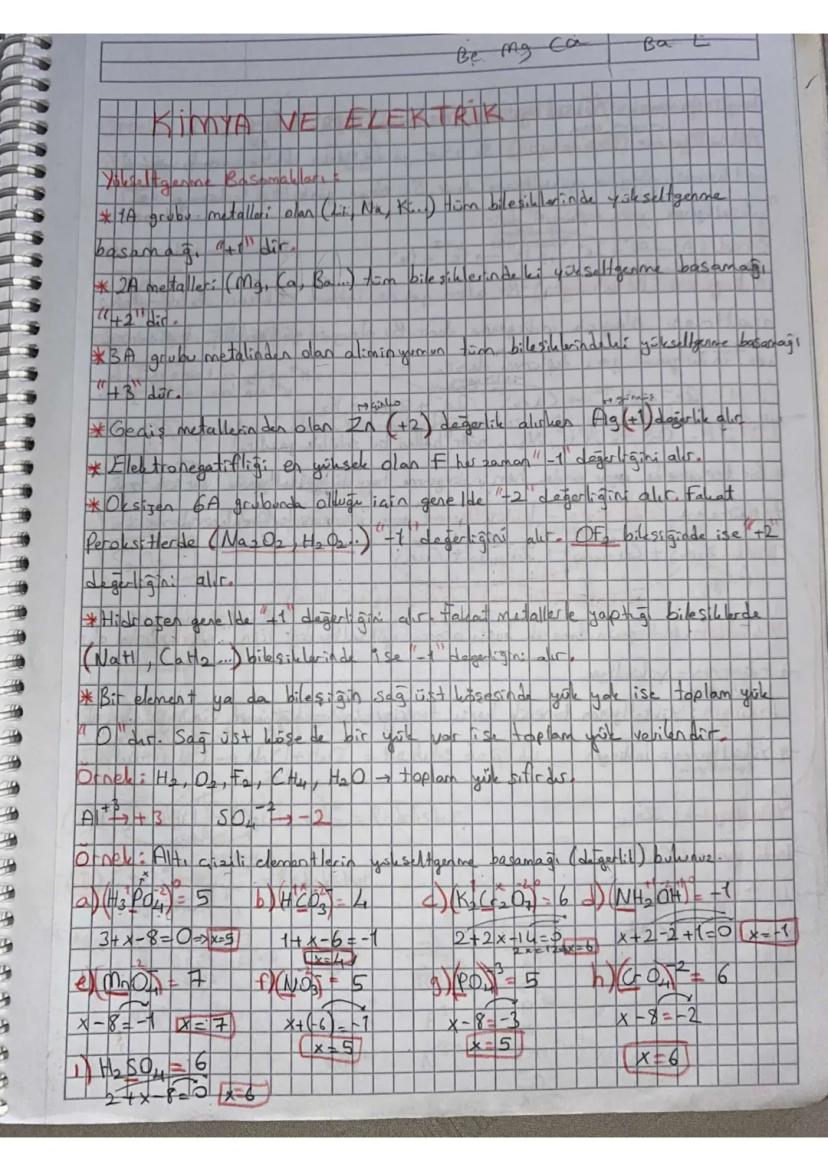 Be Mg Ca Ba
KİMYA VE ELEKTRİK
Yükseltgenme Basamakları :
* 1A grubu metalleri olan (Li, Na, K...) tüm bileşiklerinde yükseltgenme
basamağı "+1" dir.
* 2A metalleri (Mg, Ca, Ba...) tüm bileşiklerindeki yükseltgenme basamağı
"+2" dir.
* 3A grubu metalinden olan aliminyumun tüm bileşiklerindeki yükseltgenme basamağı
"+3" dür.
→ çinko → gümüş
* Geçiş metallerinden olan Zn (+2) değerlik alırken Ag(+1) değerlik alır
* Elektronegatifliği en yüksek olan F her zaman "-1" değerliğini alır.
* Oksijen 6A grubunda olduğu için genelde "-2" değerliğini alır. Fakat
Peroksitlerde (Na2O2, H2O2..) "-1" değerliğini alır. OF2 bileşiğinde ise "+2"
değerliğini alır.
* Hidrojen genelde "+1" değerliğini alır. Fakat metallerle yaptığı bileşiklerde
(NaH, CaH2...) bileşiklerinde ise "-1" değerliğini alır.
* Bir element ya da bileşiğin sağ üst köşesinde yük yok ise toplam yük
"0" dır. Sağ üst köşede bir yük var ise toplam yük verilendir.
Örnek : H2, O2, F2, CH4, H2O → toplam yük sıfırdır.
Al⁺³ → +3 SO4⁻² → -2
Örnek : Altı çizili elementlerin yükseltgenme basamağı (değerlik) bulunuz.
a) (H3PO4)⁰ = 5 b) (HCO3)⁻ = 4 c) (K2Cr2O7)⁰ = 6 d) (NH2OH)⁰ = -1
3+x-8=0 ⇒ x=5 1+x-6=-1 2+2x-14=0 x+2-2+1=0 x=-1
x=4 2x=12 x=6
e) (MnO4)⁻ = 7 f) (NO3)⁻ = 5 g) (PO4)⁻³ = 5 h) (CrO4)⁻² = 6
x-8=-1 x=7 x+(-6)=-1 x-8=-3 x-8=-2
x=5 x=5 x=6
ı) H2SO4 = 6
2+x-8=0 x=6